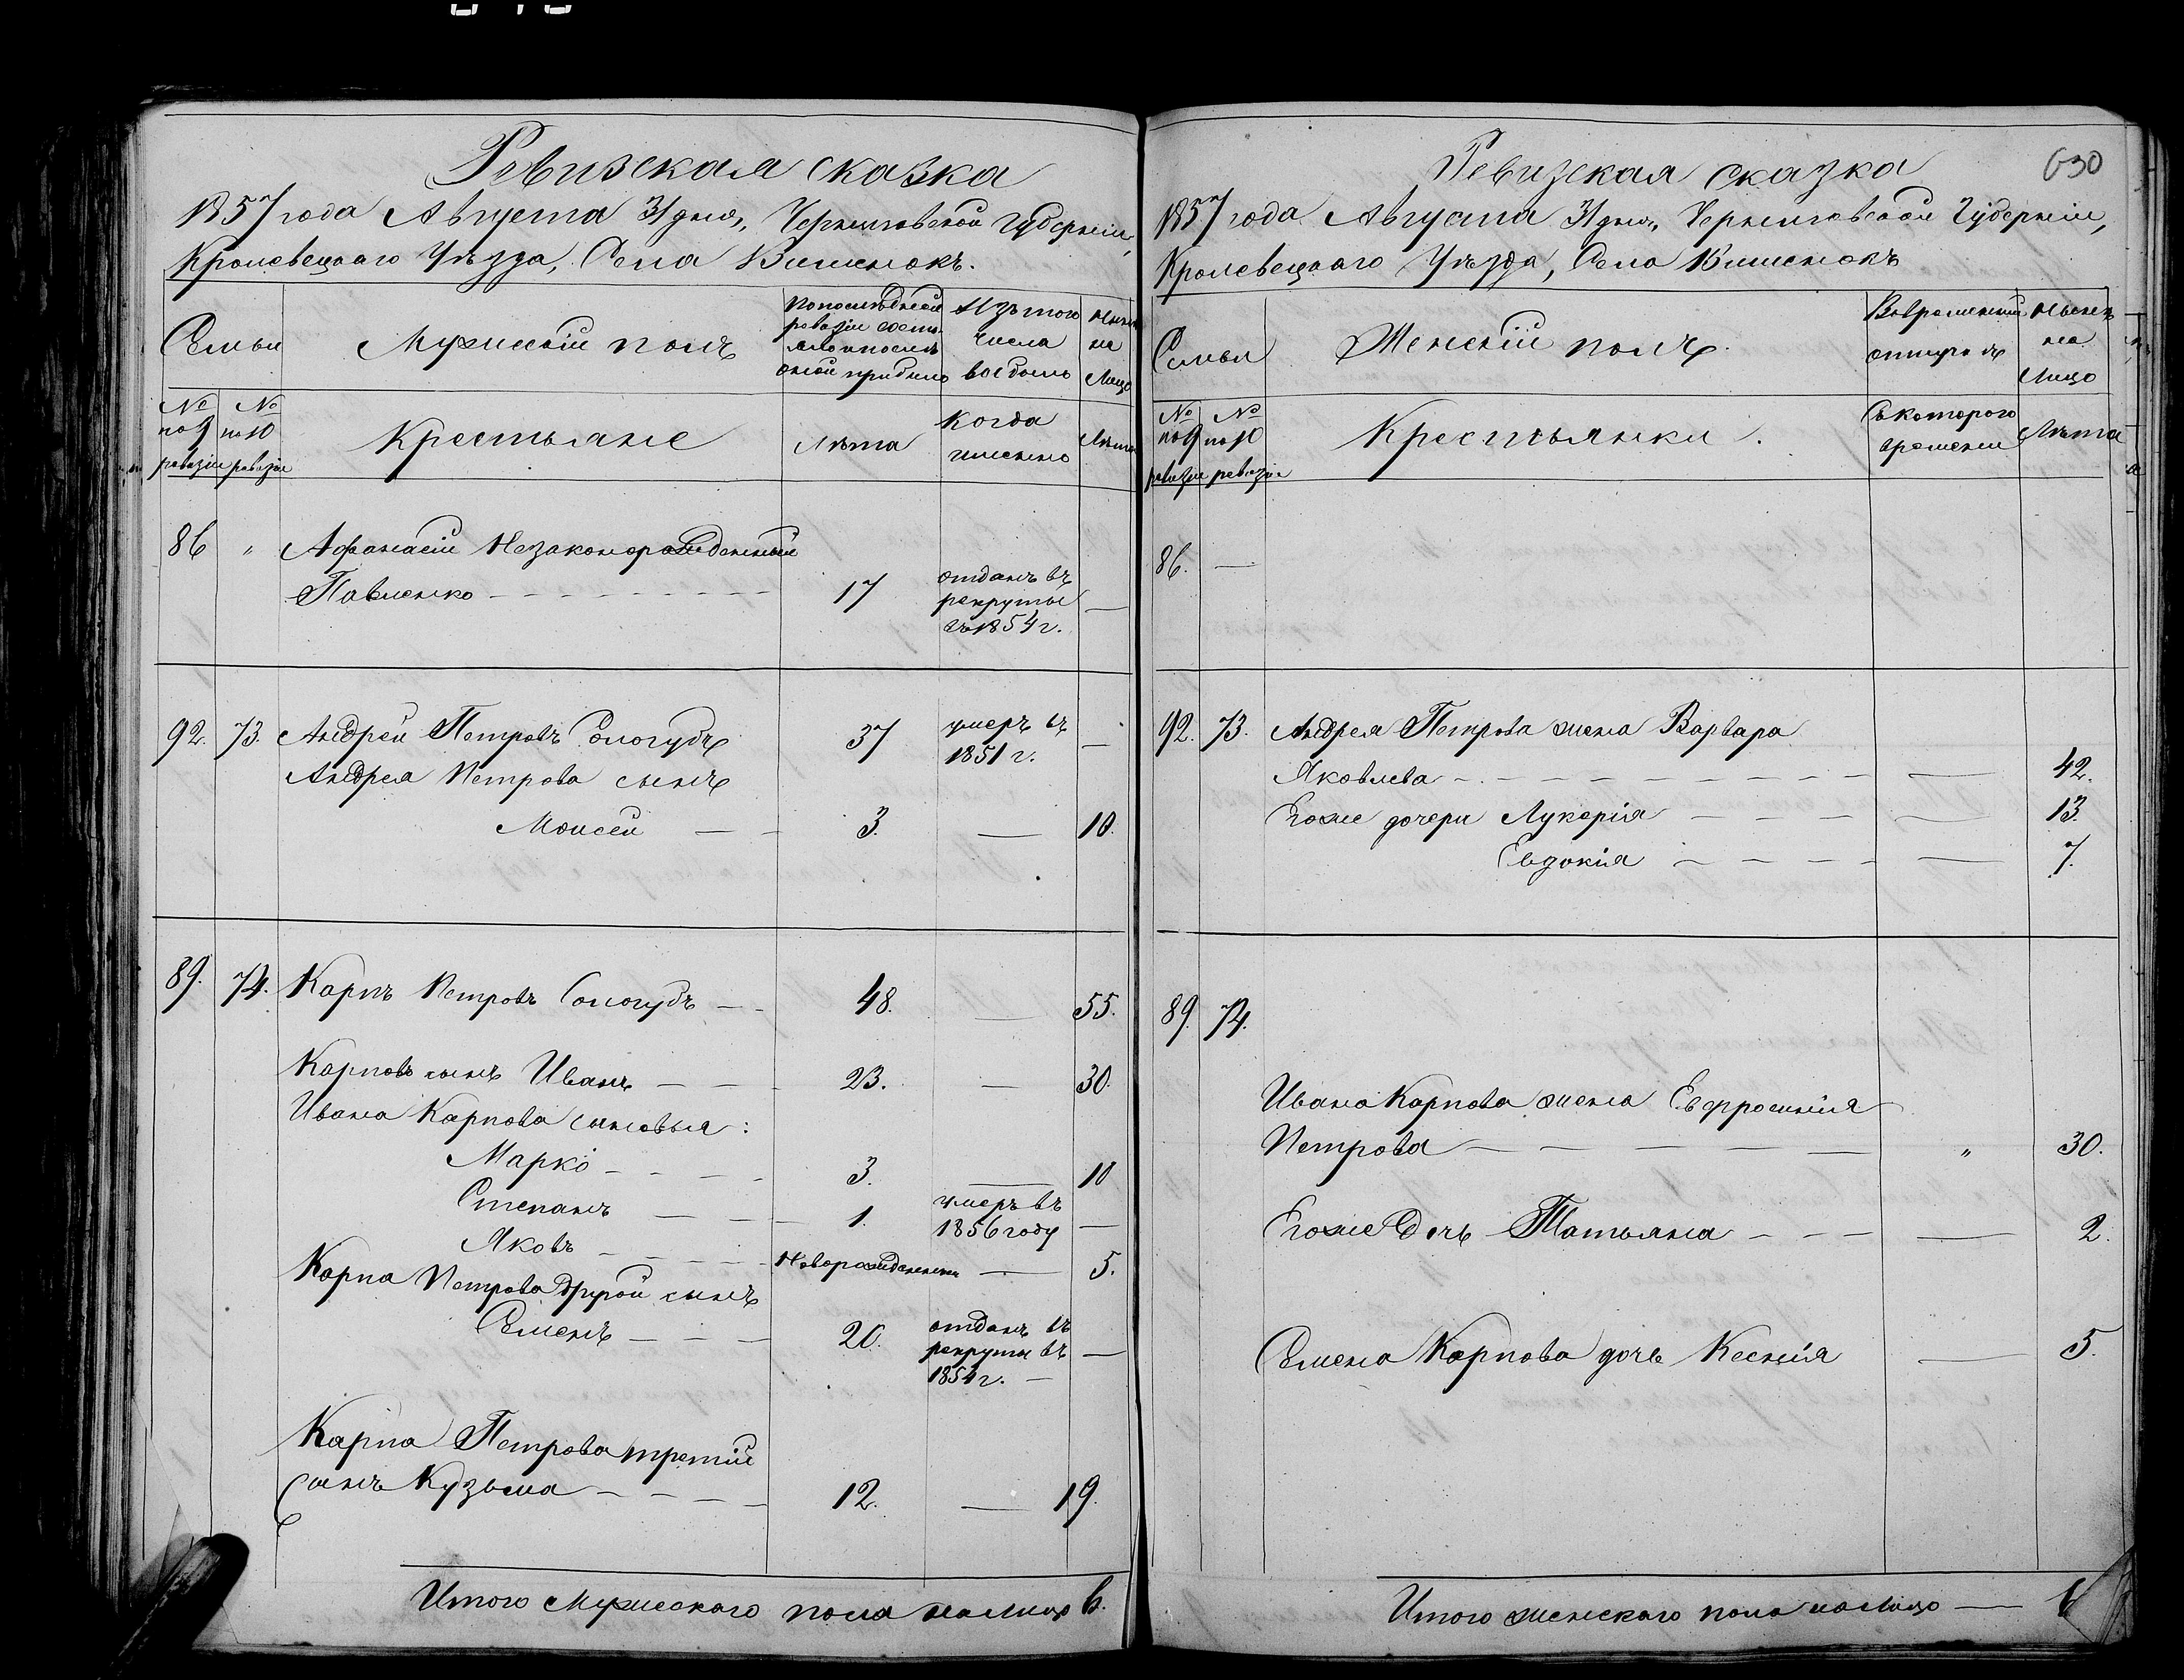 Ревизская сказка
1857 года Августа 31 дня, Черниговской Губерніи,
Кролевецкаго Уѣзда, Села Вишенокъ.
Семьи
Мужескій полъ
По последней
ревизіи состо
яло и после
оной прибыло
Изъ того
числа
выбыло
Нынѣ
на
Лицо
№ по 9 ревизіи
№ по 10 ревизіи
Крестьяне
Лѣта
Когда
именно
Лѣта
86 „ Афанасій Незаконорожденный
Павленко 17 отданъ въ
рекруты
въ 1854 г. —
92. 73. Андрей Петровъ Сологубъ 37 умеръ въ
1851 г. —
Андрея Петрова сынъ
Моисей — — 3. — 10.
89. 74. Карпъ Петровъ Сологубъ — 48. — 55.
Карповъ сынъ Иванъ — — 23. — 30.
Ивана Карпова сыновья:
Марко — — — 3. — 10
Степанъ — — — 1. умеръ въ
1856 году —
Яковъ — — — Новорожденный — 5.
Карпа Петрова другой сынъ
Семенъ — — — 20. отданъ въ
рекруты въ
1854 г. —
Карпа Петрова третій
сынъ Кузьма — — — — 12. — 19.
Итого Мужескаго пола налицо 6.
630
Ревизская сказка
1857 года Августа 31 дня, Черниговской Губерніи,
Кролевецкаго Уѣзда, Села Вишенокъ
Семьи
Женскій полъ.
Во временной
отлучкѣ
Нынѣ
на
Лицо
№ по 9 ревизіи
№ по 10 ревизіи
Крестьянки.
Съ котораго
времени
Лѣта
86. —
92. 73. Андрея Петрова жена Варвара
Яковлева — — — — — 42.
Егоже дочери Лукерія — — — — 13.
Евдокія — — — — 7.
89. 74.
Ивана Карпова жена Евфросинія
Петрова — — — — — „ 30.
Егоже дочь Татьяна — — — — 2.
Семена Карпова дочь Ксенія — 5.
Итого женскаго пола налицо — 6